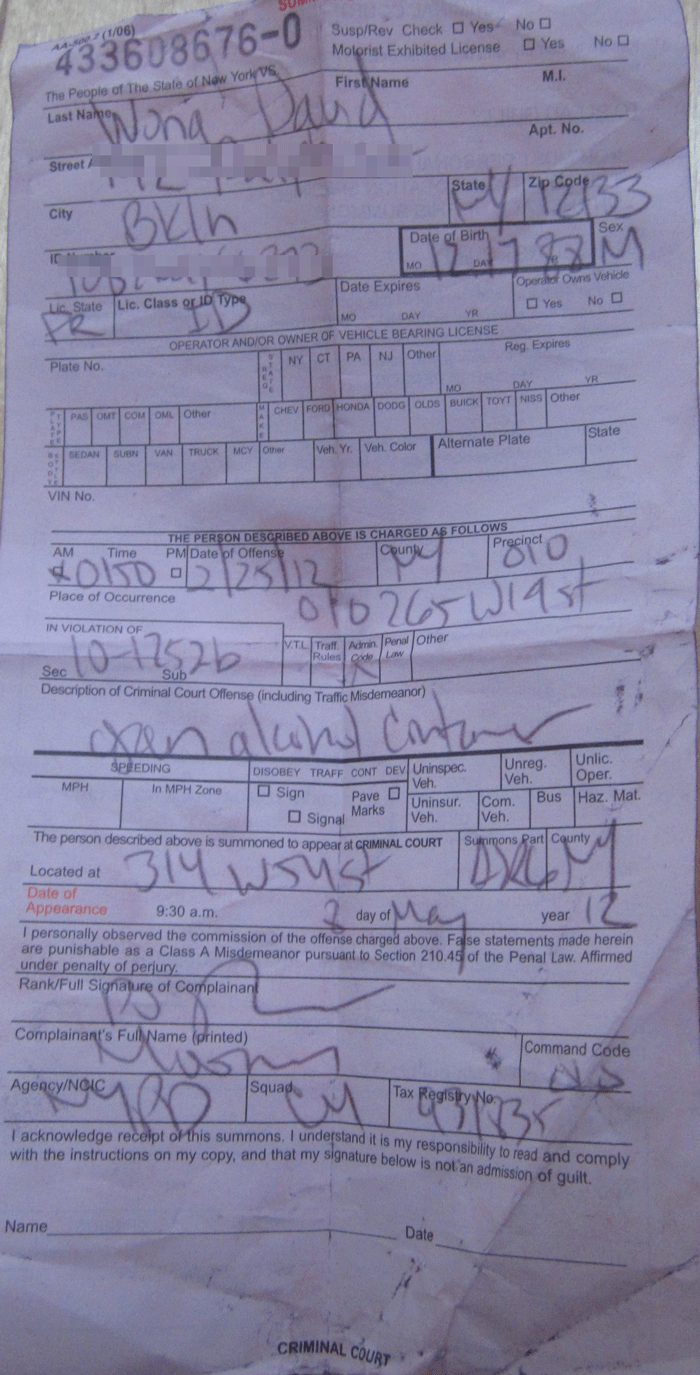 AA-500.2 (1/06)
433608676-0
Susp/Rev Check Yes No
Motorist Exhibited License Yes No
The People of The State of New York VS.
Last Name First Name M.I.
Wong, David
Street Apt. No.
City State Zip Code
Bkln NY
Date of Birth Sex
MO DAY
12 17 88 M
Lic. State Lic. Class or ID Type
ID
Date Expires
MO DAY YR
Operator Owns Vehicle
Yes No
OPERATOR AND/OR OWNER OF VEHICLE BEARING LICENSE
Plate No. NY CT PA NJ Other Reg. Expires
MO DAY YR
PLATE TYPE PAS OMT COM OML Other MAKE CHEV FORD HONDA DODG OLDS BUICK TOYT NISS Other
SEDAN SUBN VAN TRUCK MCY Other Veh. Yr. Veh. Color Alternate Plate State
VIN No.
THE PERSON DESCRIBED ABOVE IS CHARGED AS FOLLOWS
AM Time PM Date of Offense County Precinct
0150 2/25/12 NY 010
Place of Occurrence
010 265 W 19 st
IN VIOLATION OF V.T.L. Traff. Rules Admin. Code Penal Law Other
10-125 2b
Sec Sub
Description of Criminal Court Offense (including Traffic Misdemeanor)
open alcohol container
SPEEDING DISOBEY TRAFF CONT DEV Uninspec. Veh. Unreg. Veh. Unlic. Oper.
MPH In MPH Zone Sign Signal Pave Marks Uninsur. Veh. Com. Veh. Bus Haz. Mat.
The person described above is summoned to appear at CRIMINAL COURT Summons Part County
Located at 314 W 54 st NY
Date of
Appearance 9:30 a.m. 8 day of May year 12
I personally observed the commission of the offense charged above. False statements made herein
are punishable as a Class A Misdemeanor pursuant to Section 210.45 of the Penal Law. Affirmed
under penalty of perjury.
Rank/Full Signature of Complainant
Complainant's Full Name (printed)
Command Code
Agency/NCIC Squad Tax Registry No.
NYPD
I acknowledge receipt of this summons. I understand it is my responsibility to read and comply
with the instructions on my copy, and that my signature below is not an admission of guilt.
Name Date
CRIMINAL COURT